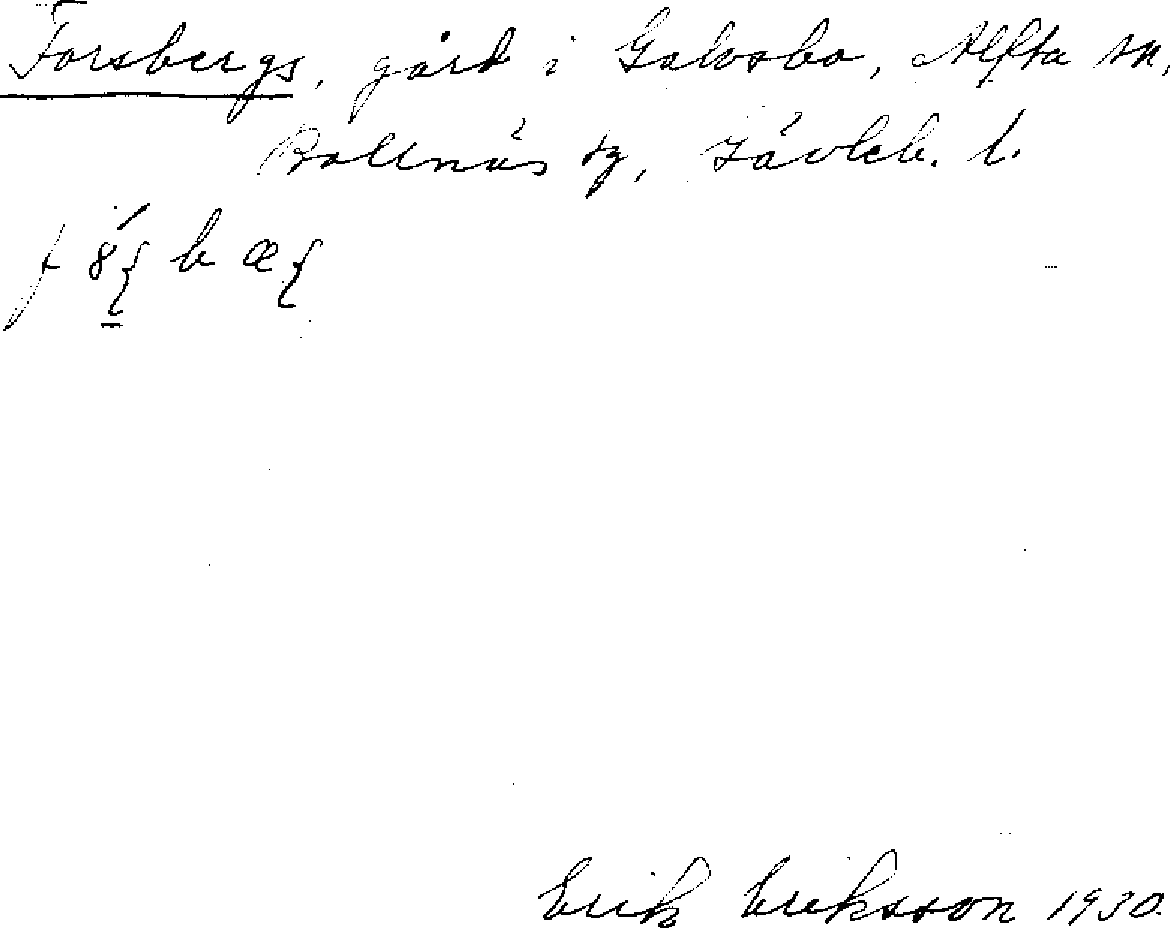 Forsbergs, gård i Galvsbo, Alfta sn,
Bollnäs tg, Gävleb. l.
Erik Eriksson 1930.